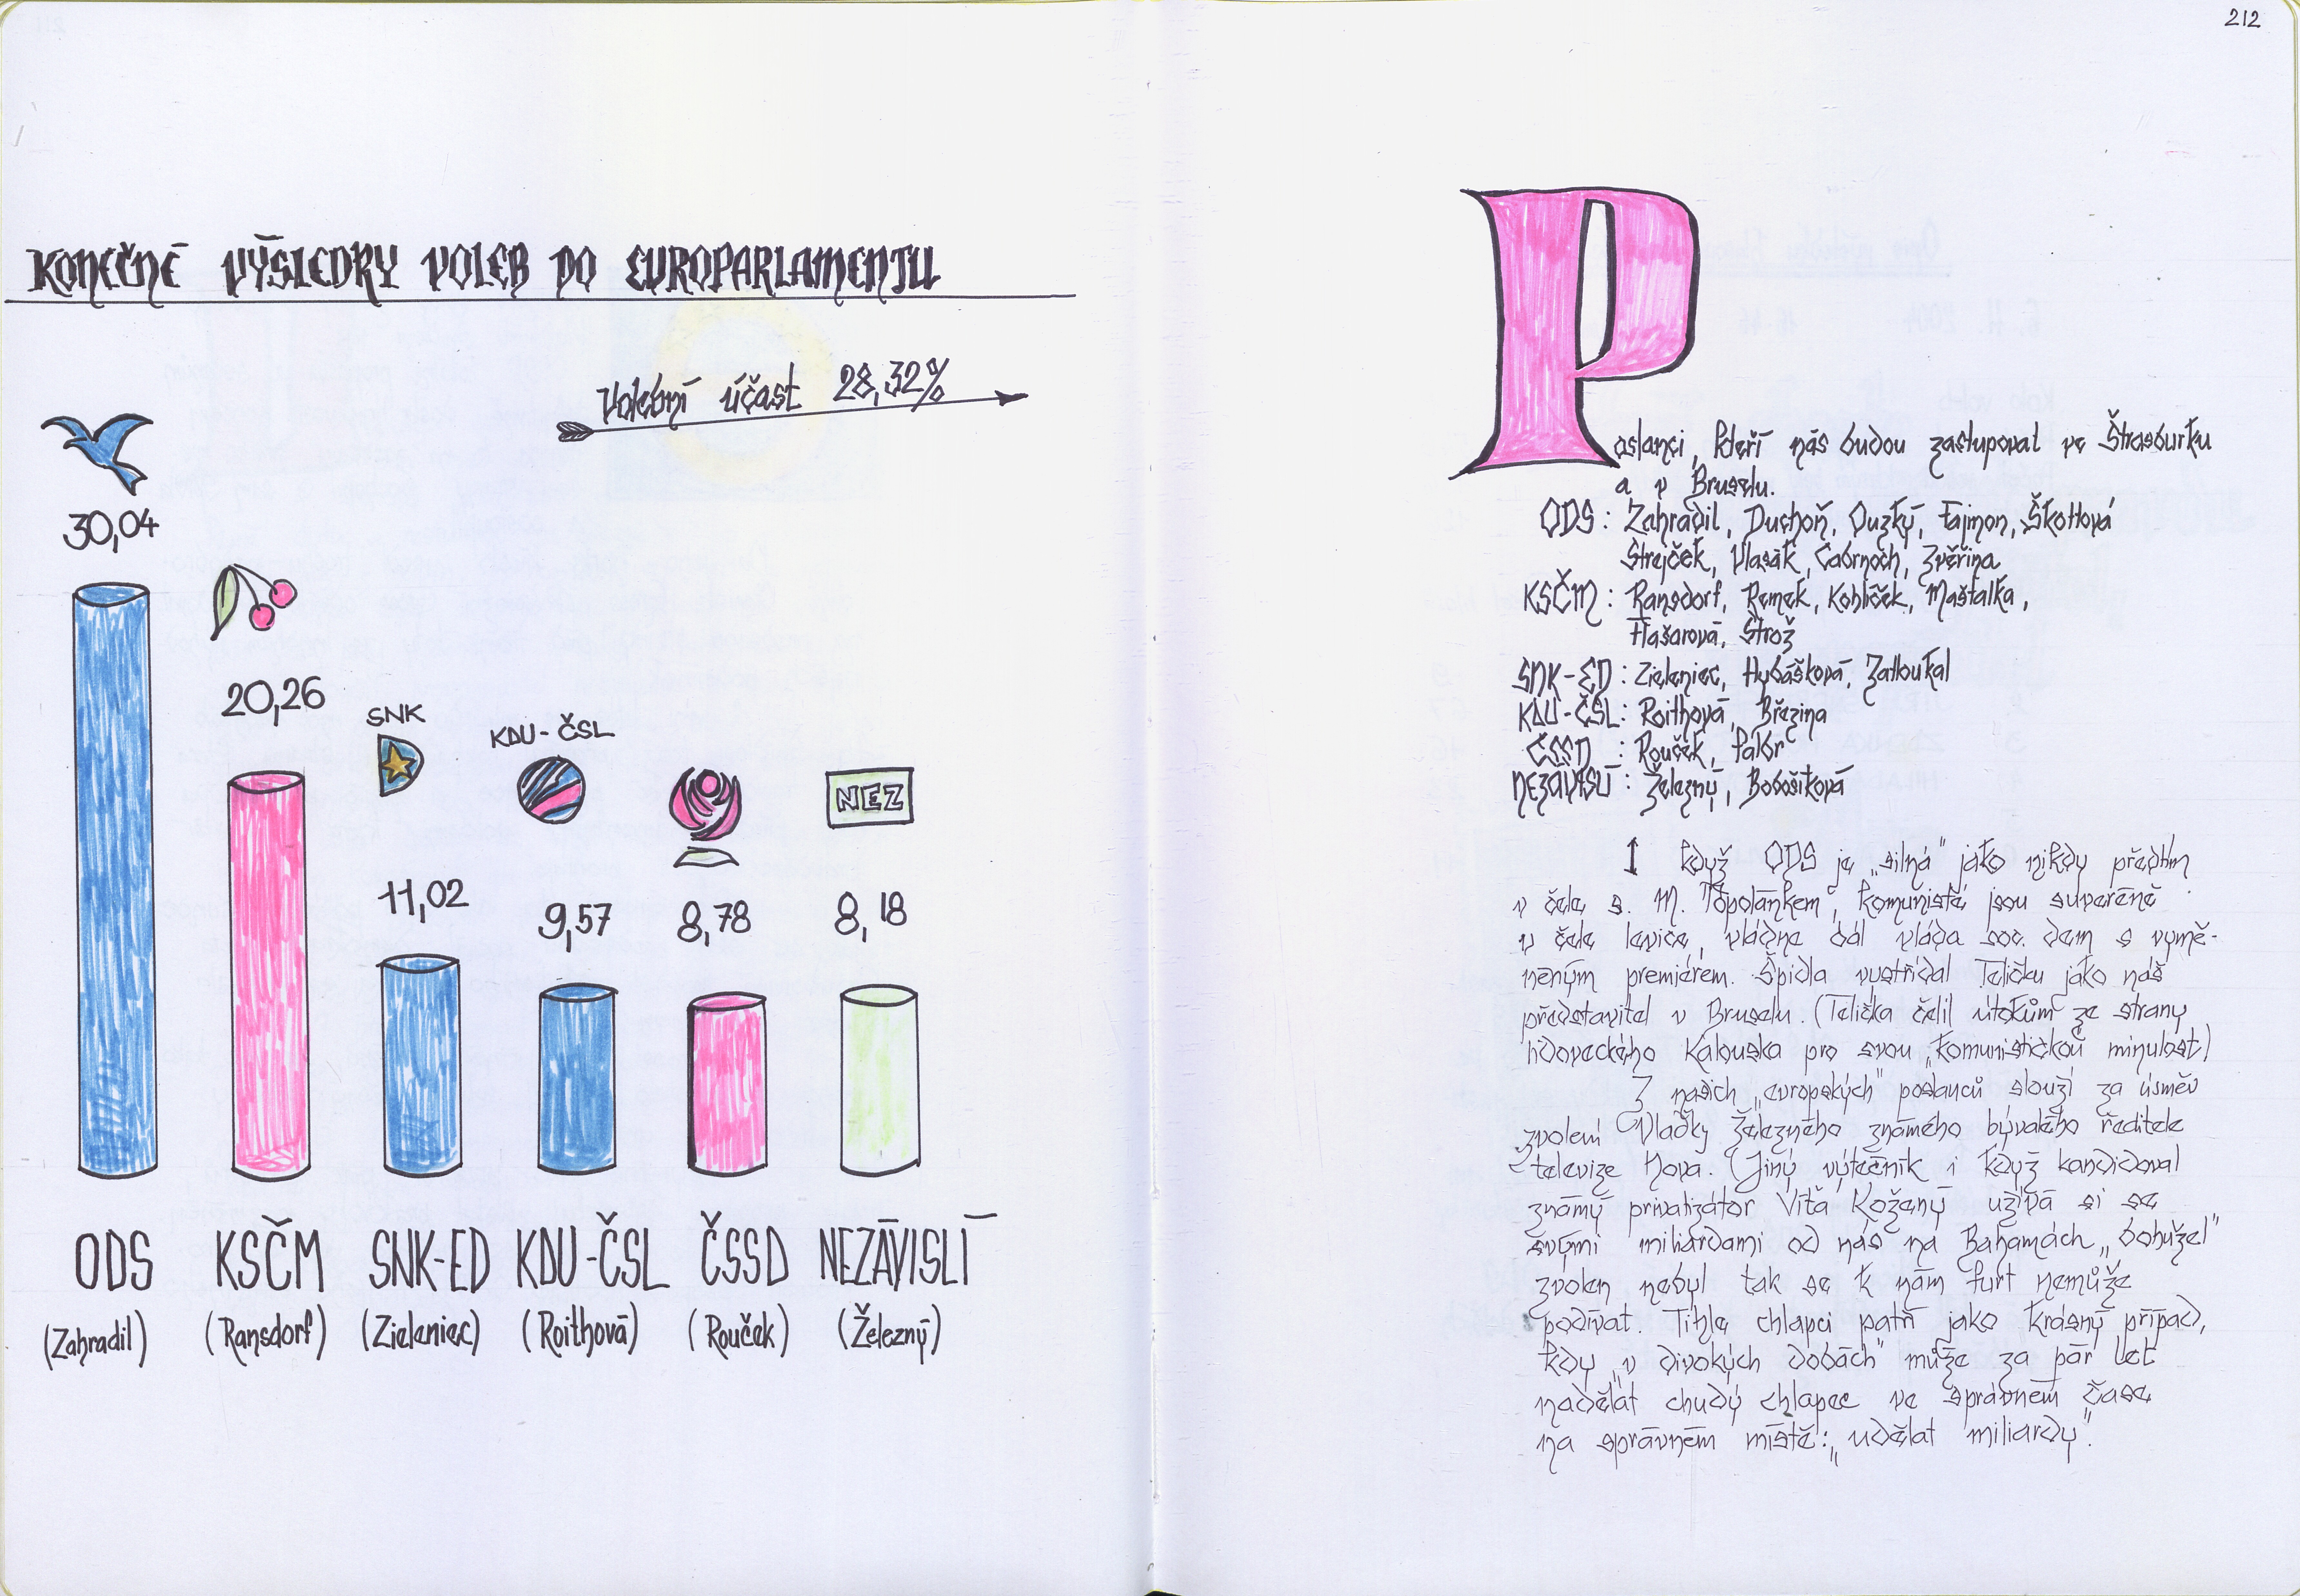 212
KONEČNÉ VÝSLEDKY VOLEB DO EUROPARLAMENTU
Volební účast 28,32%
30,04
20,26
SNK
11,02
KDU-ČSL
9,57
8,78
NEZ
8,18
ODS KSČM SNK-ED KDU-ČSL ČSSD NEZÁVISLÍ
(Zahradil) (Ransdorf) (Zieleniec) (Roithová) (Rouček) (Železný)
Poslanci, kteří nás budou zastupoval ve Štrasburku
a v Bruselu.
ODS: Zahradil, Duchoň, Ouzký, Fajmon, Škottová
Strejček, Vlasák, Cabrnoch, Zvěřina
KSČM: Ransdorf, Remek, Kohlíček, Maštalka,
Flašarová, Strož
SNK-ED: Zieleniec, Hybášková, Zatloukal
KDU-ČSL: Roithová, Březina
ČSSD: Rouček, Falbr
NEZÁVISLÍ: Železný, Bobošíková
I když ODS je „silná" jako nikdy předtím
v čele s. M. Topolánkem, komunisté jsou suveréně
v čele levice, vládne dál vláda soc. dem s vymě-
něným premiérem. Špidla vystřídal Teličku jako náš
představitel v Bruselu. (Telička čelil útokům ze strany
lidoveckého Kalouska pro svou „komunistickou minulost)
Z našich „evropských" poslanců slouží za úsměv
zvolení Vlaďky Železného známého bývalého ředitele
televize Nova. (Jiný výtečník i když kandidoval
známý privatizátor Víťa Kožený užívá si se
svými miliardami od nás na Bahamách „bohužel"
zvolen nebyl tak se k nám furt nemůže
podívat. Tihle chlapci patří jako krásný případ,
kdy „v divokých dobách" může za pár let
nadělat chudý chlapec ve správném čase
na správném místě: „udělat miliardy".